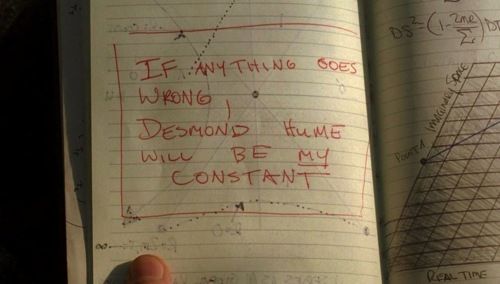 IF ANYTHING GOES
WRONG,
DESMOND HUME
WILL BE MY
CONSTANT
IMAGINARY SPACE
POINT A
REAL TIME